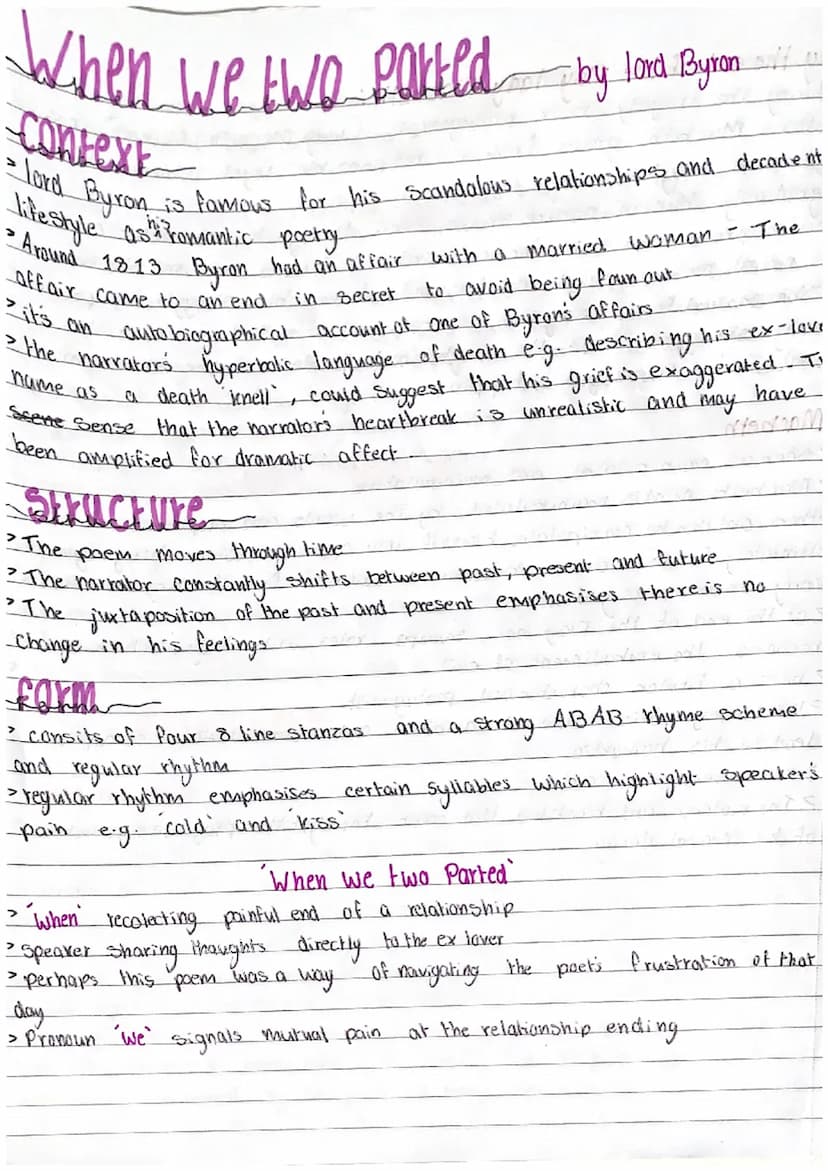 When we two parted - by lord Byron
Context
> lord Byron is famous for his scandalous relationships and decadent
lifestyle as his romantic poetry
> Around 1813 Byron had an affair with a married woman - The
affair came to an end in secret to avoid being foun out
> it's an autobiographical account of one of Byron's affairs
> the narrator's hyperbolic language of death e.g. describing his ex-love
name as a death 'knell', could suggest that his grief is exaggerated - T
scene sense that the narrator's heartbreak is unrealistic and may have
been amplified for dramatic affect
Structure
> The poem moves through time
> The narrator constantly shifts between past, present and future
> The juxtaposition of the past and present emphasises there is no
change in his feelings
form
> consits of four 8 line stanzas and a strong ABAB rhyme scheme
and regular rhythm
> regular rhythm emphasises certain syllables which highlight speaker's
pain e.g. 'cold' and 'kiss'
'When we two Parted'
> 'When' recolecting painful end of a relationship
> Speaker sharing thoughts directly to the ex lover
> perhaps this poem was a way of navigating the poet's frustration of that
day
> Pronoun 'we' signals mutual pain at the relationship ending